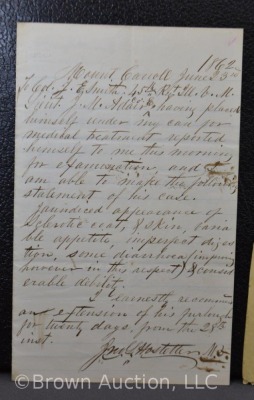 1862
Mount Carroll June 23rd
To Col. J. E. Smith, 45th Regt Ill. V. M.
Sir: J. M. Adair having placed
himself under my care for
medical treatment reported
himself to me this morning
for examination, and I
am able to make the following
statement of his case.
Jaundiced appearance of
Sclerotic coat, & skin, variable
appetite, imperfect digestion,
some diarrhea (improving
however in this respect) & considerable
debility.
I earnestly recommend
an extension of his furlough
for twenty days, from the 28th
inst.
Jno. Hostetter M.D.
© Brown Auction, LLC